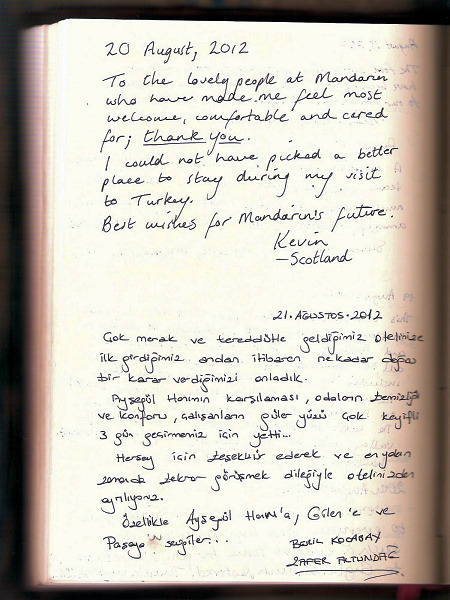 20 August, 2012
To the lovely people at Mandarin
who have made me feel most
welcome, comfortable and cared
for; thank you.
I could not have picked a better
place to stay during my visit
to Turkey.
Best wishes for Mandarin's future.
Kevin
– Scotland
21.AĞUSTOS.2012
Çok merak ve tereddütle geldiğimiz otelinize
ilk girdiğimiz andan itibaren nekadar doğru
bir karar verdiğimizi anladık.
Ayşegül Hanımın karşılaması, odaların temizliği
ve konforu, çalışanların güler yüzü çok keyifli
3 gün geçirmemiz için yetti...
Herşey için teşekkür ederek ve en yakın
zamanda tekrar görüşmek dileğiyle otelinizden
ayrılıyoruz.
Özellikle Ayşegül Hanım'a, Gülen'e ve
Paşaya sevgiler...
BERİL KOCABAY
ZAFER ALTUNDAĞ